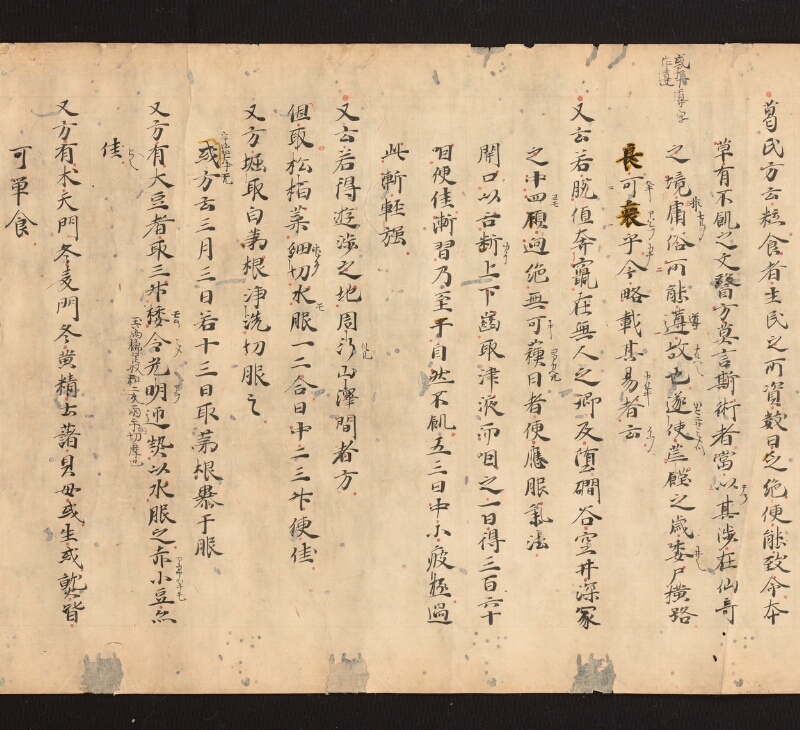 葛氏方云粒食者生民之所資數日乏絶便能致命本
草有不飢之文醫方莫言斯術者當以其涉在仙奇
之境庸俗所能遵故也遂使荒饉之歳委尸横路
良可哀乎今略載其易者云
又云若脱值奔竄在無人之郷及堕磵谷空井深冢
之中四顧迥絶無可藾日者便應服氣法
開口以舌断上下齒取津液而咽之一日得三百六十
咽便佳漸習乃至千自然不飢五三日中小疲極過
此漸軽强
又云若得遊涼之地周行山澤間者方
但取松柏葉細切水服一二合日中二三升便佳
又方掘取白茅根浄洗切服之
或方云三月三日若十三日取茅根暴干服
又方有大豆者取三升挼令光明迊熱以水服之赤小豆亦
佳
又方有朮天門冬麦門冬黄精土藷貝母或生或熟皆
可単食